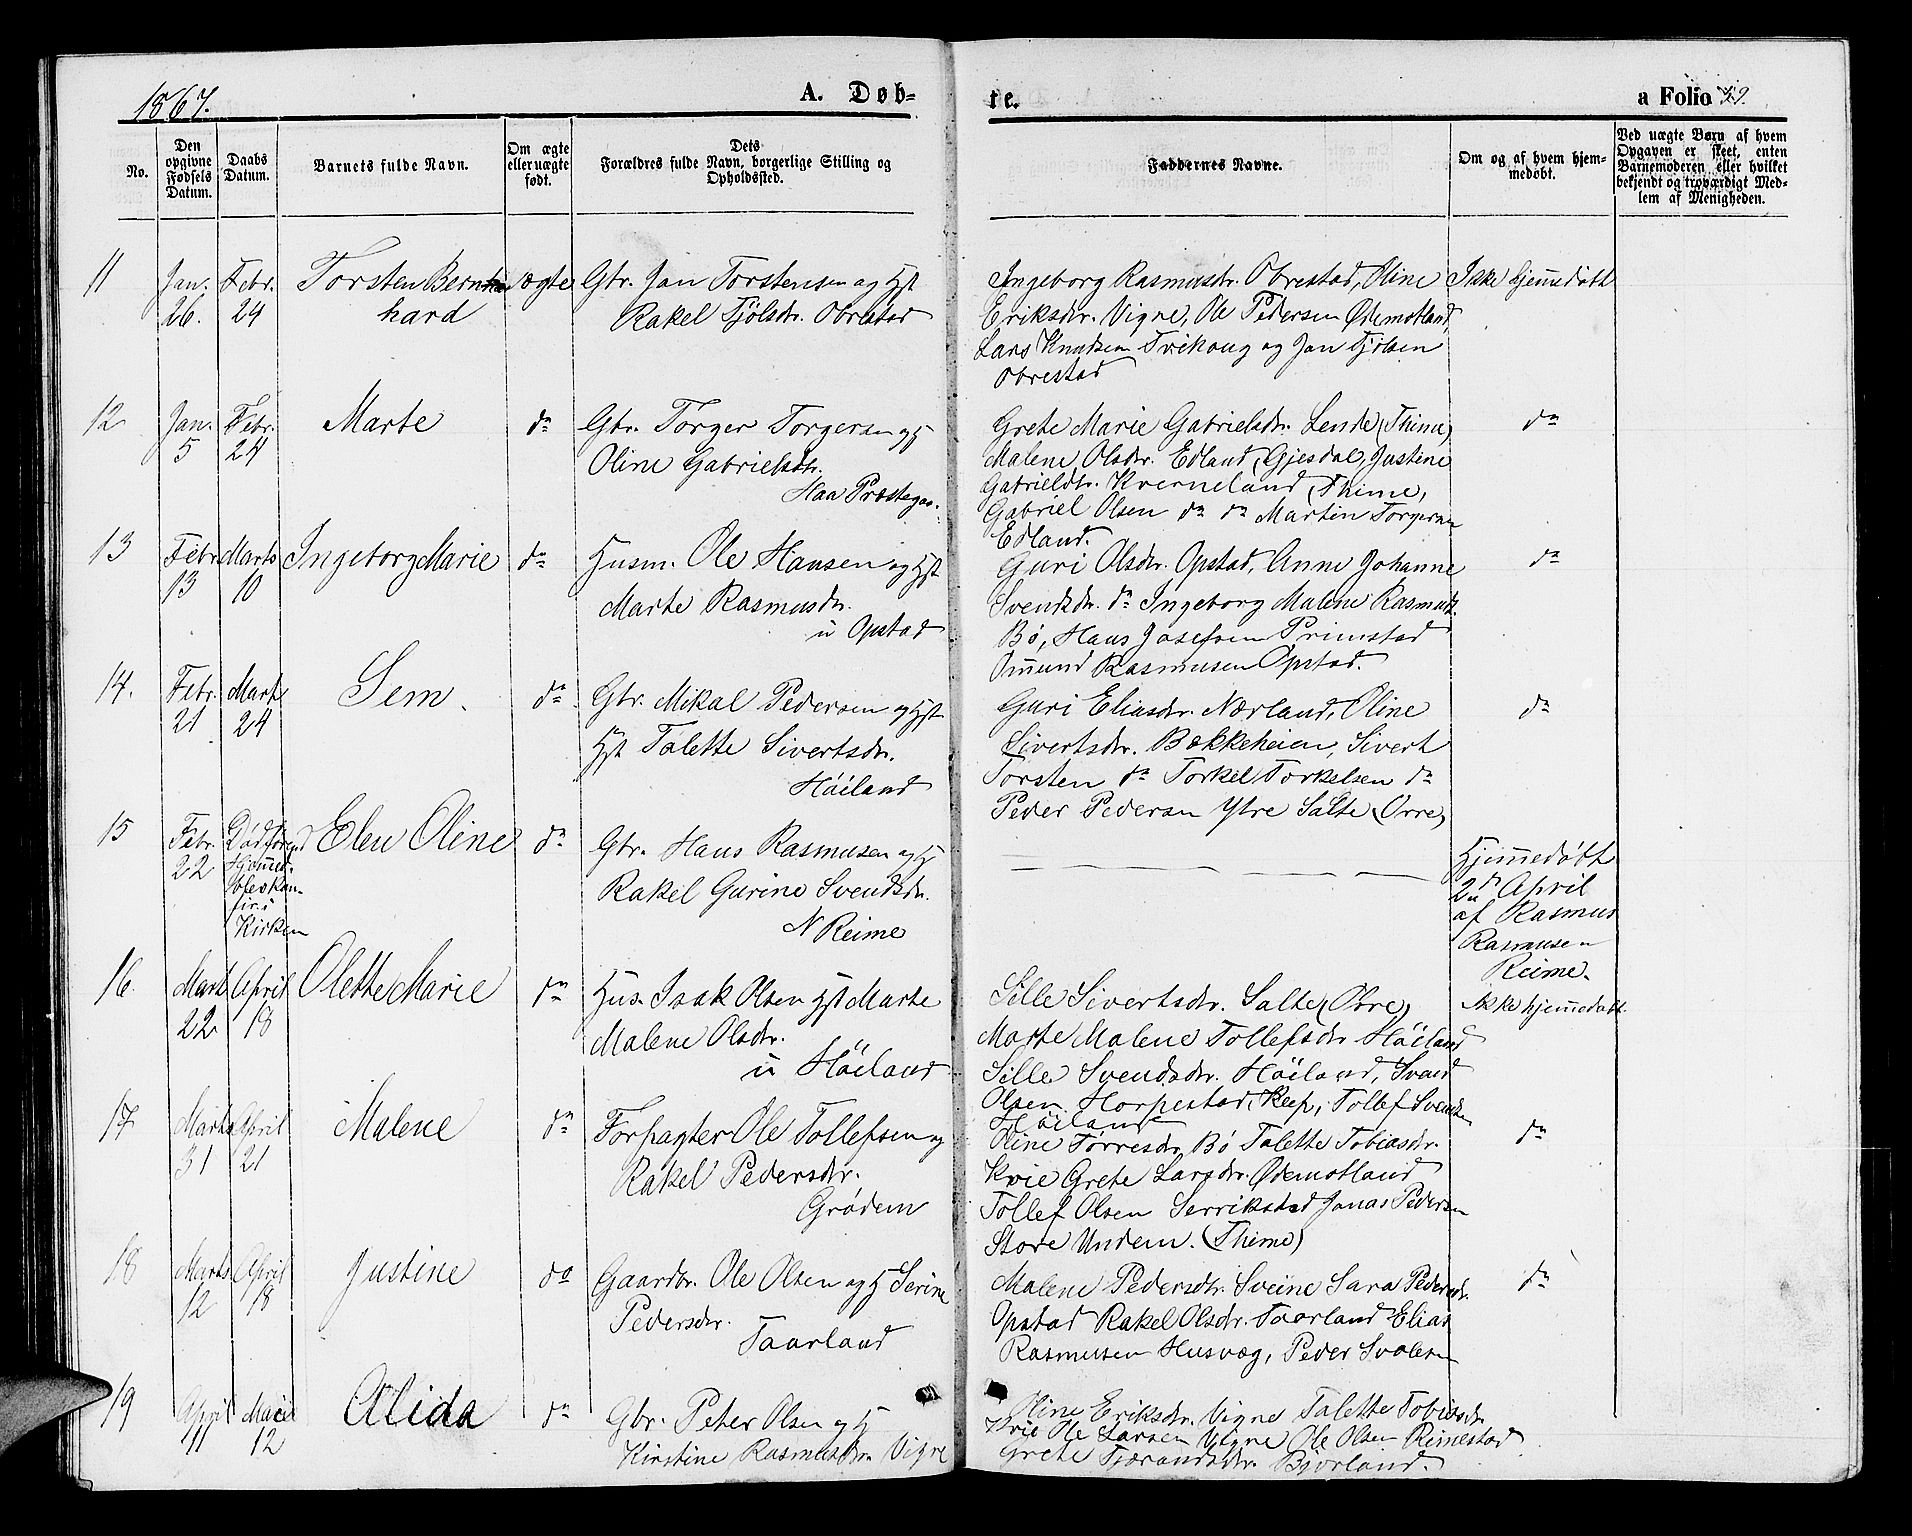 1867.
A. Døb-
te.
a Folio 29.
No.
Den opgivne Fødsels Datum.
Daabs Datum.
Barnets fulde Navn.
Om ægte eller uægte født.
Dets
Forældres fulde Navn, borgerlige Stilling og
Opholdssted.
Faddernes Navne.
Om og af hvem hjem-
medøbt.
Ved uægte Børn af hvem
Opgaven er skeet, enten
Barnemoderen eller hvilket
bekjendt og troværdigt Med-
lem af Menigheden.
11
Jan. 26.
Febr. 24
Torsten Bern
hard
ægte
Gbr. Jan Torstensen og Hst
Rakel Fjølsdr. Obrestad
Ingeborg Rasmusdr. Obrestad, Oline
Eriksdr. Vigne, Ole Pedersen Ødemotland
Lars Knudsen Tvihoug og Jan Fjølsen
Obrestad
Ikke hjemmedøbt
12
Jan. 5
Febr. 24
Marte
do
Gbr. Torger Torgersen og H
Oline Gabrielsdtr.
Haa Præstegar.
Grete Marie Gabrielsdr. Lende (Thime)
Malene Olsdr. Edland, Gjesdal, Justine
Gabrieldtr. Kverneland (Thime,
Gabriel Olsen do do Martin Torgersen
Edland.
do
13
Febr. 13
Marts 10
Ingeborg Marie
do
Husm. Ole Hansen og Hst
Marte Rasmusdr.
u Opstad
Guri Olsdr. Opstad, Anne Johanne
Svendsdr. do Ingeborg Malene Rasmusd.
Bø, Hans Josefsen Primstad
Omund Rasmusen Opstad.
do
14.
Febr. 21
Marts 24
Sem.
do
Gbr. Mikal Pedersen og Hst
Hst Talette Sivertsdr.
Höiland
Guri Eliasdr. Nærland, Oline
Sivertsdr. Bækkeheien, Sivert
Torsten do Torkel Torkelsen do
Peder Pedersen Ytre Salte (Orre)
do
15
Febr. 22
Död förend
Hjemmed.
blev kon-
fir. i
Kirken
Elen Oline
do
Gbr. Hans Rasmusen og H
Rakel Gurine Svendsdr.
N Reime
Hjemmedøbt
2n April
af Rasmus
Rasmusen
Reime.
16.
Marts 22
April 18
Olette Marie
do
Hus. Isak Olsen Hst Marte
Malene Olsdr.
u Höiland
Sille Sivertsdr. Salte (Orre)
Marte Malene Tollefsdr. Höiland
Sille Svendsdr. Höiland, Svend
Olsen Horpestad, Klep, Tollef Svendsen
Höiland
Ikke hjemmedøbt.
17
Marts 31
April 21
Malene
do
Forpagter Ole Tollefsen og
Rakel Pedersdr.
Grødem
Oline Tørresdr. Bø Talette Tobiasdr.
Kvie Grete Larsdr. Ødemotland
Tollef Olsen Serrikstad Jonas Pedersen
Store Undem. (Thime)
do
18
Marts 12
April 18
Justine
do
Gaardbr. Ole Olsen og H Serine
Pedersdr.
Taarland
Malene Pedersdtr. Sveine Sara Pedersdr.
Opstad Rakel Olsdr. Taarland Elias
Rasmusen Husvæg, Peder Svalesen
do
19
April 11
Mai 12
Alida
do
Gbr. Peter Olsen og H
Kirstine Rasmusdr. Vigne
Oline Eriksdr. Vigne Talette Tobiasdr.
Kvie Ole Larsen Vigne Ole Olsen Rimestad
Grete Tjerandsdr. Bjorland.